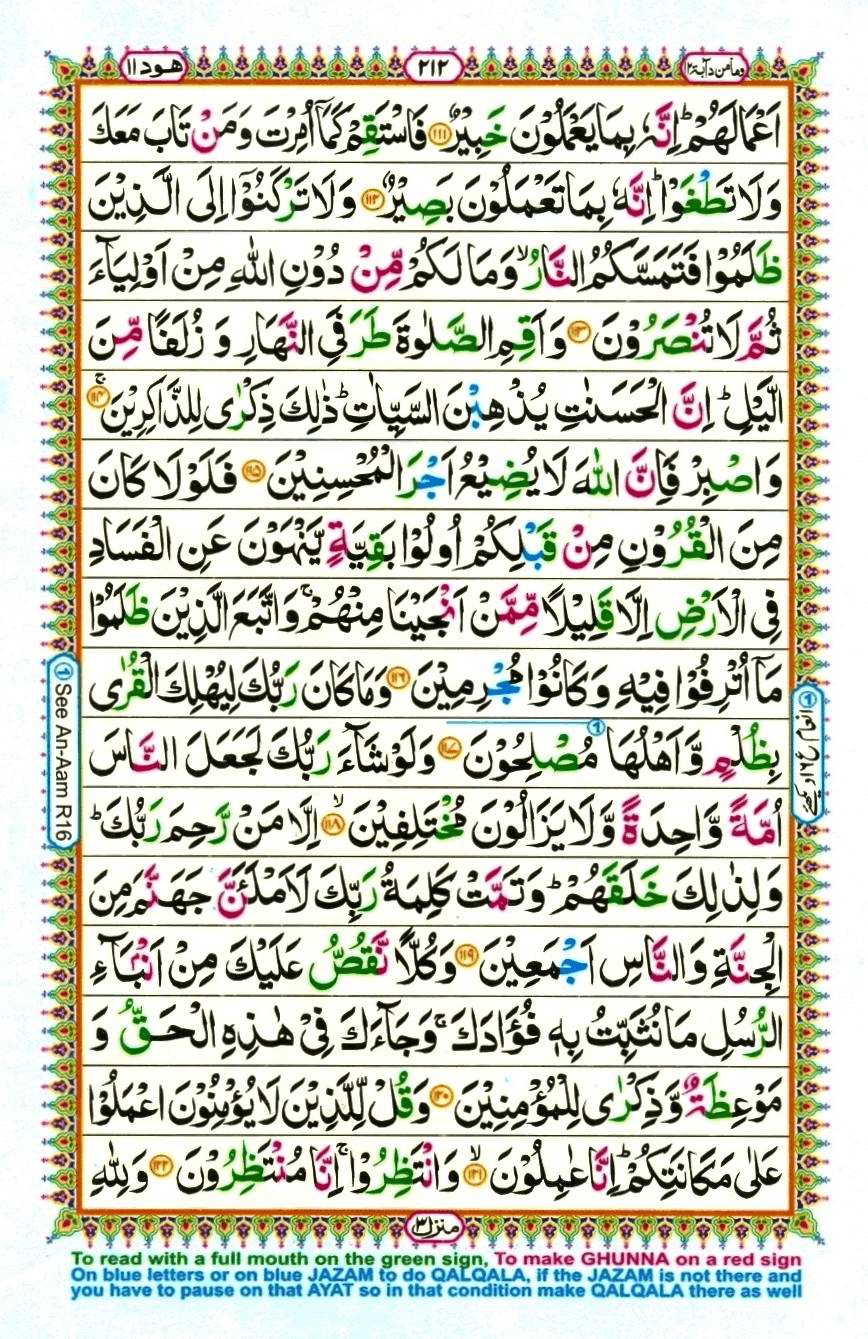 وما من دآبة ١٢
٢١٢
هود ١١
اَعْمَالَهُمْ ؕ اِنَّهٗ بِمَا یَعْمَلُوْنَ خَبِیْرٌ ۝۱۱۱ فَاسْتَقِمْ كَمَاۤ اُمِرْتَ وَ مَنْ تَابَ مَعَكَ
وَ لَا تَطْغَوْا ؕ اِنَّهٗ بِمَا تَعْمَلُوْنَ بَصِیْرٌ ۝۱۱۲ وَ لَا تَرْكَنُوْۤا اِلَی الَّذِیْنَ
ظَلَمُوْا فَتَمَسَّكُمُ النَّارُ ۙ وَ مَا لَكُمْ مِّنْ دُوْنِ اللّٰهِ مِنْ اَوْلِیَآءَ
ثُمَّ لَا تُنْصَرُوْنَ ۝۱۱۳ وَ اَقِمِ الصَّلٰوةَ طَرَفَیِ النَّهَارِ وَ زُلَفًا مِّنَ
الَّیْلِ ؕ اِنَّ الْحَسَنٰتِ یُذْهِبْنَ السَّیِّاٰتِ ؕ ذٰلِكَ ذِكْرٰی لِلذّٰكِرِیْنَ ۝۱۱۴ۚ
وَ اصْبِرْ فَاِنَّ اللّٰهَ لَا یُضِیْعُ اَجْرَ الْمُحْسِنِیْنَ ۝۱۱۵ فَلَوْ لَا كَانَ
مِنَ الْقُرُوْنِ مِنْ قَبْلِكُمْ اُولُوْا بَقِیَّةٍ یَّنْهَوْنَ عَنِ الْفَسَادِ
فِی الْاَرْضِ اِلَّا قَلِیْلًا مِّمَّنْ اَنْجَیْنَا مِنْهُمْ ۚ وَ اتَّبَعَ الَّذِیْنَ ظَلَمُوْا
مَاۤ اُتْرِفُوْا فِیْهِ وَ كَانُوْا مُجْرِمِیْنَ ۝۱۱۶ وَ مَا كَانَ رَبُّكَ لِیُهْلِكَ الْقُرٰی
بِظُلْمٍ وَّ اَهْلُهَا مُصْلِحُوْنَ ۝۱۱۷ وَ لَوْ شَآءَ رَبُّكَ لَجَعَلَ النَّاسَ
اُمَّةً وَّاحِدَةً وَّ لَا یَزَالُوْنَ مُخْتَلِفِیْنَ ۝۱۱۸ۙ اِلَّا مَنْ رَّحِمَ رَبُّكَ ؕ
وَ لِذٰلِكَ خَلَقَهُمْ ؕ وَ تَمَّتْ كَلِمَةُ رَبِّكَ لَاَمْلَـَٔنَّ جَهَنَّمَ مِنَ
الْجِنَّةِ وَ النَّاسِ اَجْمَعِیْنَ ۝۱۱۹ وَ كُلًّا نَّقُصُّ عَلَیْكَ مِنْ اَنْۢبَآءِ
الرُّسُلِ مَا نُثَبِّتُ بِهٖ فُؤَادَكَ ۚ وَ جَآءَكَ فِیْ هٰذِهِ الْحَقُّ وَ
مَوْعِظَةٌ وَّ ذِكْرٰی لِلْمُؤْمِنِیْنَ ۝۱۲۰ وَ قُلْ لِّلَّذِیْنَ لَا یُؤْمِنُوْنَ اعْمَلُوْا
عَلٰی مَكَانَتِكُمْ ؕ اِنَّا عٰمِلُوْنَ ۝۱۲۱ۙ وَ انْتَظِرُوْا ۚ اِنَّا مُنْتَظِرُوْنَ ۝۱۲۲ وَ لِلّٰهِ
① See An-Aam R16
① انعام ع ١٦ دیکھئے
منزل ٣
To read with a full mouth on the green sign, To make GHUNNA on a red sign
On blue letters or on blue JAZAM to do QALQALA, if the JAZAM is not there and
you have to pause on that AYAT so in that condition make QALQALA there as well